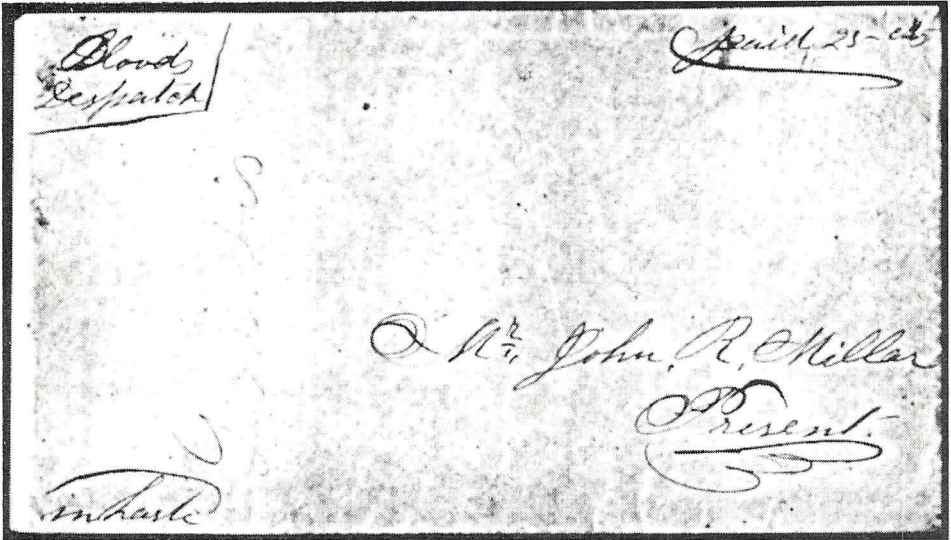 Bloods
Despatch
paid 25-cts
Mr. John. R. Millar
Present.
in haste